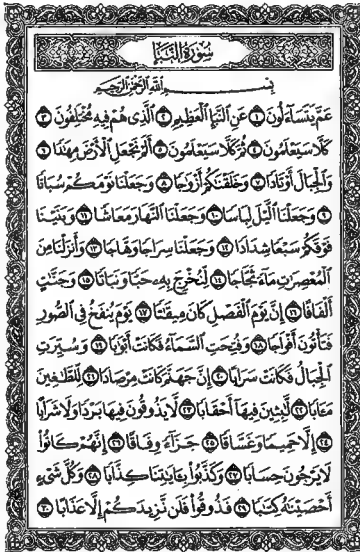 سُورَةُ النَّبَإِ
بِسْمِ اللَّهِ الرَّحْمَٰنِ الرَّحِيمِ
عَمَّ يَتَسَاءَلُونَ ١ عَنِ النَّبَإِ الْعَظِيمِ ٢ الَّذِي هُمْ فِيهِ مُخْتَلِفُونَ ٣
كَلَّا سَيَعْلَمُونَ ٤ ثُمَّ كَلَّا سَيَعْلَمُونَ ٥ أَلَمْ نَجْعَلِ الْأَرْضَ مِهَٰدًا ٦
وَالْجِبَالَ أَوْتَادًا ٧ وَخَلَقْنَٰكُمْ أَزْوَٰجًا ٨ وَجَعَلْنَا نَوْمَكُمْ سُبَاتًا
٩ وَجَعَلْنَا الَّيْلَ لِبَاسًا ١٠ وَجَعَلْنَا النَّهَارَ مَعَاشًا ١١ وَبَنَيْنَا
فَوْقَكُمْ سَبْعًا شِدَادًا ١٢ وَجَعَلْنَا سِرَاجًا وَهَّاجًا ١٣ وَأَنْزَلْنَا مِنَ
الْمُعْصِرَٰتِ مَاءً ثَجَّاجًا ١٤ لِنُخْرِجَ بِهِ حَبًّا وَنَبَاتًا ١٥ وَجَنَّٰتٍ
أَلْفَافًا ١٦ إِنَّ يَوْمَ الْفَصْلِ كَانَ مِيقَٰتًا ١٧ يَوْمَ يُنْفَخُ فِي الصُّورِ
فَتَأْتُونَ أَفْوَاجًا ١٨ وَفُتِحَتِ السَّمَاءُ فَكَانَتْ أَبْوَٰبًا ١٩ وَسُيِّرَتِ
الْجِبَالُ فَكَانَتْ سَرَابًا ٢٠ إِنَّ جَهَنَّمَ كَانَتْ مِرْصَادًا ٢١ لِلطَّٰغِينَ
مَـَٔابًا ٢٢ لَّٰبِثِينَ فِيهَا أَحْقَابًا ٢٣ لَا يَذُوقُونَ فِيهَا بَرْدًا وَلَا شَرَابًا
٢٤ إِلَّا حَمِيمًا وَغَسَّاقًا ٢٥ جَزَاءً وِفَاقًا ٢٦ إِنَّهُمْ كَانُوا
لَا يَرْجُونَ حِسَابًا ٢٧ وَكَذَّبُوا بِـَٔايَٰتِنَا كِذَّابًا ٢٨ وَكُلَّ شَيْءٍ
أَحْصَيْنَٰهُ كِتَٰبًا ٢٩ فَذُوقُوا فَلَنْ نَزِيدَكُمْ إِلَّا عَذَابًا ٣٠